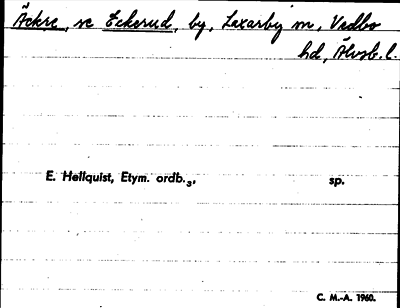 Äckre, se Eckerud, by, Laxarby sn, Vedbo
hd, Älvsb. l.
E. Hellquist, Etym. ordb.₃, sp.
C. M.-A. 1960.